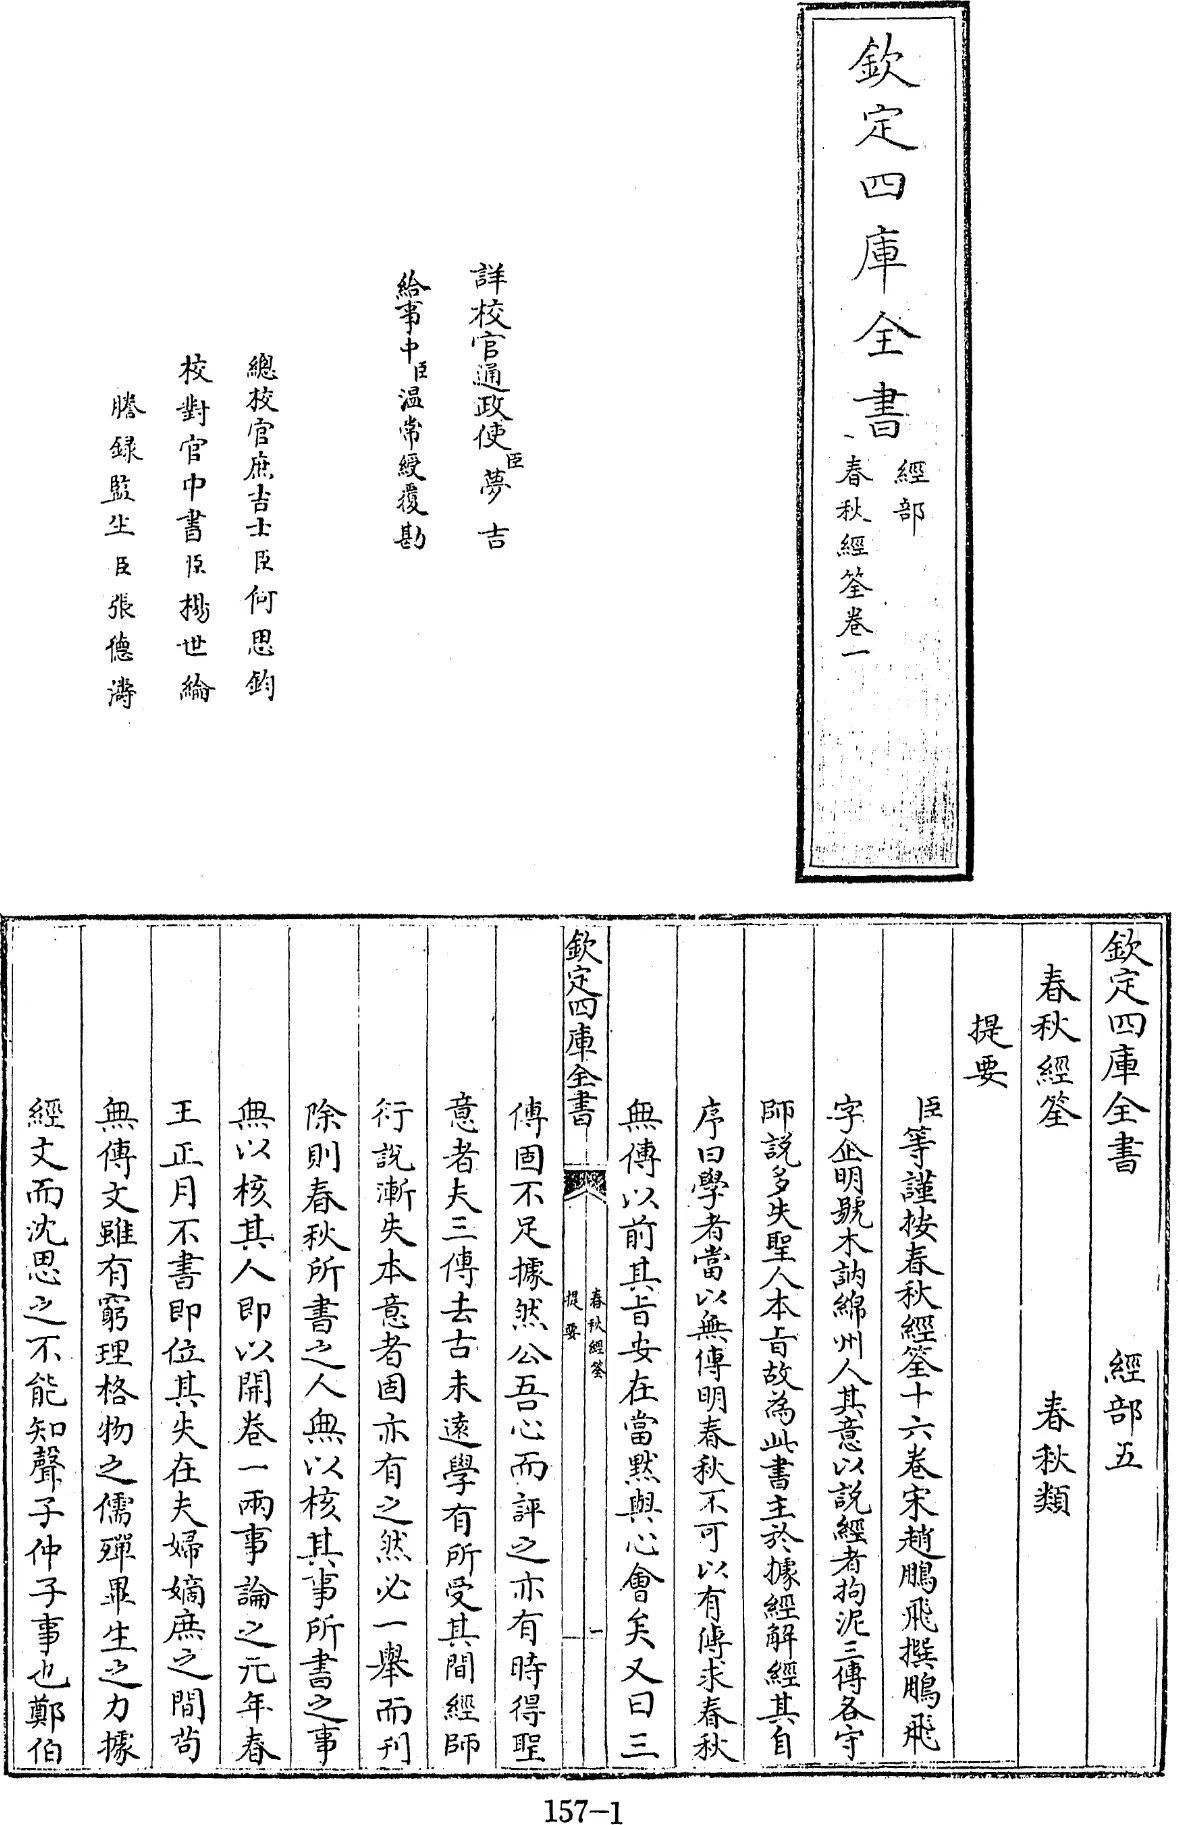 欽定四庫全書
經部
春秋經筌卷一
詳校官通政使臣夢吉
給事中臣温常綬覆勘
總校官庶吉士臣何思鈞
校對官中書臣楊世綸
謄録監生臣張德濤
欽定四庫全書 經部五
春秋經筌 春秋類
提要
臣等謹按春秋經筌十六卷宋趙鵬飛撰鵬飛
字企明號木訥綿州人其意以説經者拘泥三傳各守
師説多失聖人本旨故為此書主於據經解經其自
序曰學者當以無傳明春秋不可以有傳求春秋
無傳以前其旨安在當黙與心會矣又曰三
欽定四庫全書
春秋經筌
提要
一
傳固不足據然公吾心而評之亦有時得聖
意者夫三傳去古未遠學有所受其間經師
衍說漸失本意者固亦有之然必一舉而刋
除則春秋所書之人無以核其事所書之事
無以核其人即以開卷一兩事論之元年春
王正月不書即位其失在夫婦嫡庶之間苟
無傳文雖有窮理格物之儒殫畢生之力據
經文而沈思之不能知聲子仲子事也鄭伯
157-1